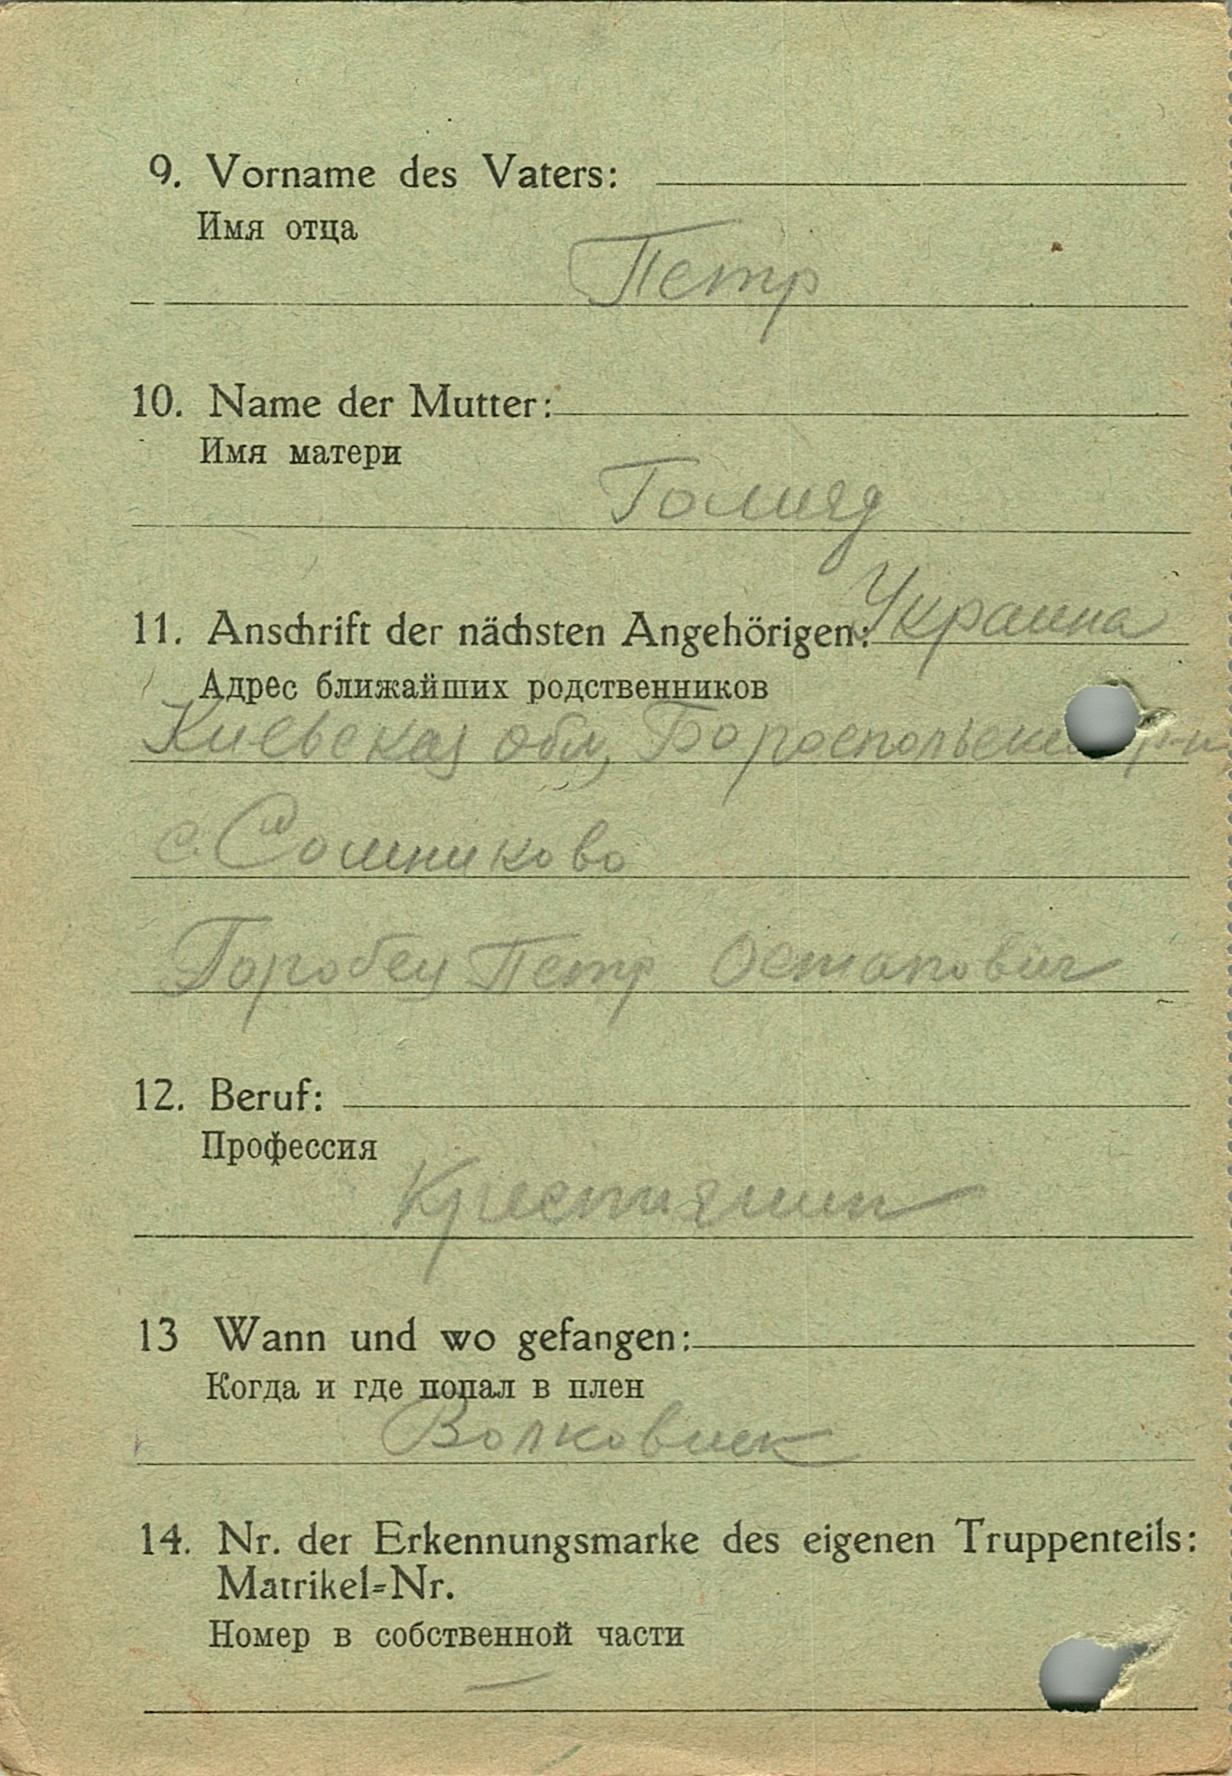 9. Vorname des Vaters:
Имя отца
Петр
10. Name der Mutter:
Имя матери
11. Anschrift der nächsten Angehörigen: Украина
Адрес ближайших родственников
Киевская обл, Бороспольский р-н
с. Сомниково
Горобец Петр Остапович
12. Beruf:
Профессия
13 Wann und wo gefangen:
Когда и где попал в плен
Волковиск
14. Nr. der Erkennungsmarke des eigenen Truppenteils:
Matrikel-Nr.
Номер в собственной части
—